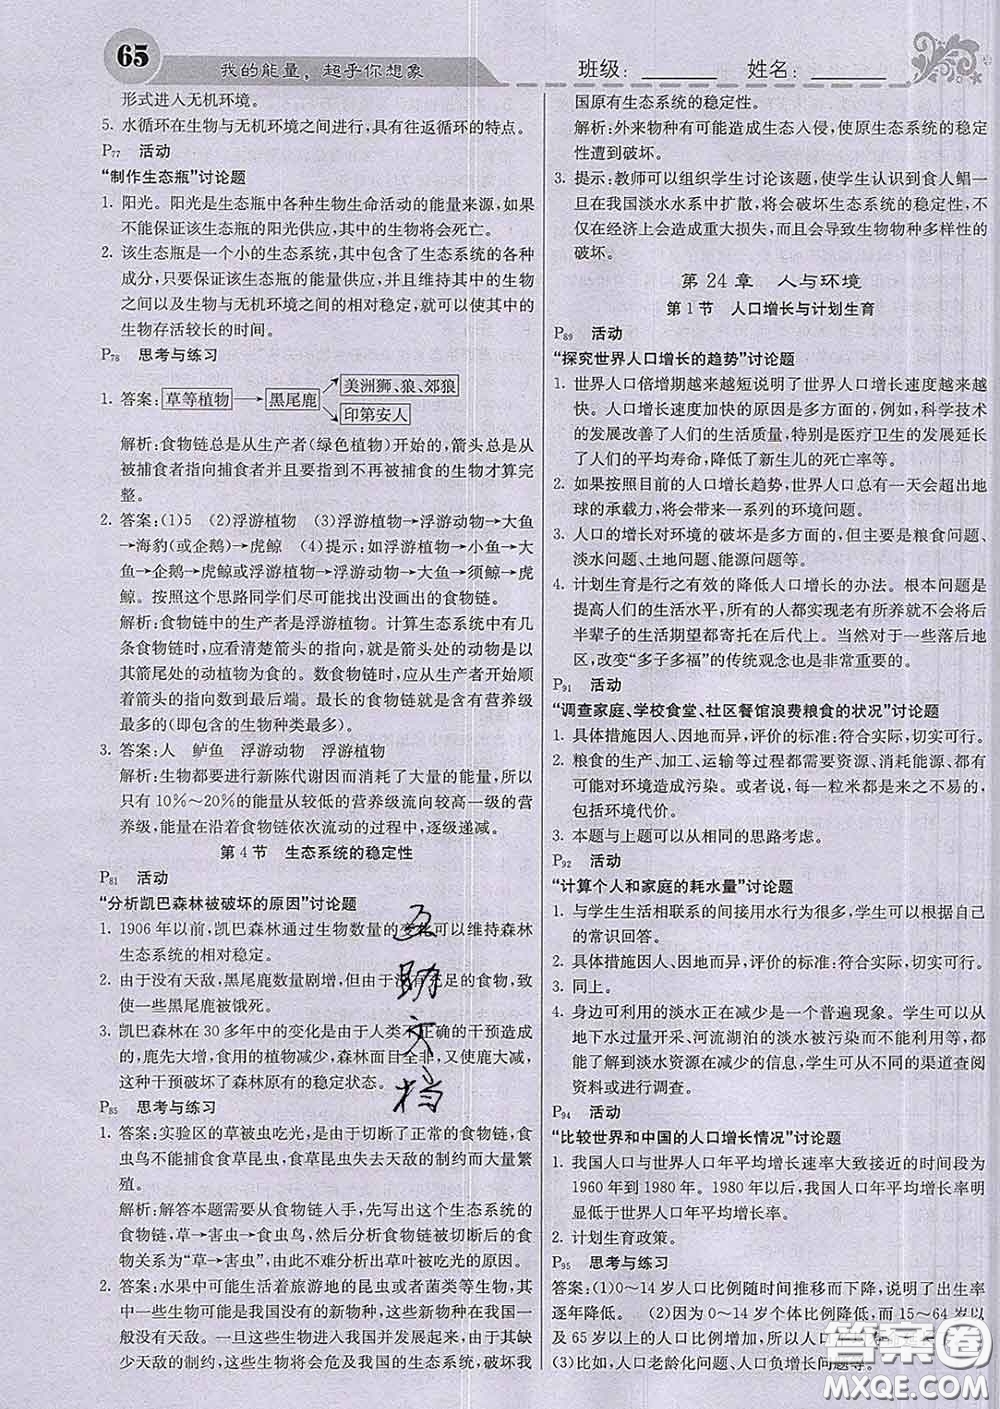 65
我的能量，超乎你想象
班级：
姓名：
形式进入无机环境。
5. 水循环在生物与无机环境之间进行，具有往返循环的特点。
P77 活动
“制作生态瓶”讨论题
1. 阳光。阳光是生态瓶中各种生物生命活动的能量来源，如果
不能保证该生态瓶的阳光供应，其中的生物将会死亡。
2. 该生态瓶是一个小的生态系统，其中包含了生态系统的各种
成分，只要保证该生态瓶的能量供应，并且维持其中的生物
之间以及生物与无机环境之间的相对稳定，就可以使其中的
生物存活较长的时间。
P78 思考与练习
1. 答案：草等植物→黑尾鹿
美洲狮、狼、郊狼
印第安人
解析：食物链总是从生产者（绿色植物）开始的，箭头总是从
被捕食者指向捕食者并且要指到不再被捕食的生物才算完
整。
2. 答案：(1)5 (2)浮游植物 (3)浮游植物→浮游动物→大鱼
→海豹(或企鹅)→虎鲸 (4)提示：如浮游植物→小鱼→大
鱼→企鹅→虎鲸或浮游植物→浮游动物→大鱼→须鲸→虎
鲸。按照这个思路同学们尽可能找出没画出的食物链。
解析：食物链中的生产者是浮游植物。计算生态系统中有几
条食物链时，应看清楚箭头的指向，就是箭头处的动物是以
其箭尾处的动植物为食的。数食物链时，应从生产者开始顺
着箭头的指向数到最后端。最长的食物链就是含有营养级
最多的(即包含的生物种类最多)。
3. 答案：人 鲈鱼 浮游动物 浮游植物
解析：生物都要进行新陈代谢因而消耗了大量的能量，所以
只有10%～20%的能量从较低的营养级流向较高一级的营
养级，能量在沿着食物链依次流动的过程中，逐级递减。
第 4 节 生态系统的稳定性
P81 活动
“分析凯巴森林被破坏的原因”讨论题
1. 1906 年以前，凯巴森林通过生物数量的变化可以维持森林
生态系统的相对稳定。
2. 由于没有天敌，黑尾鹿数量剧增，但由于没有充足的食物，致
使一些黑尾鹿被饿死。
3. 凯巴森林在 30 多年中的变化是由于人类不正确的干预造成
的，鹿先大增，食用的植物减少，森林面目全非，又使鹿大减，
这种干预破坏了森林原有的稳定状态。
P85 思考与练习
1. 答案：实验区的草被虫吃光，是由于切断了正常的食物链，食
虫鸟不能捕食食草昆虫，食草昆虫失去天敌的制约而大量繁
殖。
解析：解答本题需要从食物链入手，先写出这个生态系统的
食物链，草→害虫→食虫鸟，然后分析食物链被切断后的食
物关系为“草→害虫”，由此不难分析出草叶被吃光的原因。
2. 答案：水果中可能生活着旅游地的昆虫或者菌类等生物，其
中一些生物可能是我国没有的新物种，这些新物种在我国一
般没有天敌。一旦这些生物进入我国并发展起来，由于其缺
少天敌的制约，这些生物将会危及我国的生态系统，破坏我
国原有生态系统的稳定性。
解析：外来物种有可能造成生态入侵，使原生态系统的稳定
性遭到破坏。
3. 提示：教师可以组织学生讨论该题，使学生认识到食人鲳一
旦在我国淡水水系中扩散，将会破坏生态系统的稳定性，不
仅在经济上会造成重大损失，而且会导致生物物种多样性的
破坏。
第 24 章 人与环境
第 1 节 人口增长与计划生育
P89 活动
“探究世界人口增长的趋势”讨论题
1. 世界人口倍增期越来越短说明了世界人口增长速度越来越
快。人口增长速度加快的原因是多方面的，例如，科学技术
的发展改善了人们的生活质量，特别是医疗卫生的发展延长
了人们的平均寿命，降低了新生儿的死亡率等。
2. 如果按照目前的人口增长趋势，世界人口总有一天会超出地
球的承载力，将会带来一系列的环境问题。
3. 人口的增长对环境的破坏是多方面的，但主要是粮食问题、
淡水问题、土地问题、能源问题等。
4. 计划生育是行之有效的降低人口增长的办法。根本问题是
提高人们的生活水平，所有的人都实现老有所养就会将后
半辈子的生活期望都寄托在后代上。当然对于一些落后地
区，改变“多子多福”的传统观念也是非常重要的。
P91 活动
“调查家庭、学校食堂、社区餐馆浪费粮食的状况”讨论题
1. 具体措施因人、因地而异，评价的标准：符合实际，切实可行。
2. 粮食的生产、加工、运输等过程都需要资源、消耗能源，都有
可能对环境造成污染。或者说，每一粒米都是来之不易的，
包括环境代价。
3. 本题与上题可以从相同的思路考虑。
P92 活动
“计算个人和家庭的耗水量”讨论题
1. 与学生生活相联系的间接用水行为很多，学生可以根据自己
的常识回答。
2. 具体措施因人、因地而异，评价的标准：符合实际，切实可行。
3. 同上。
4. 身边可利用的淡水正在减少是一个普遍现象。学生可以从
地下水过量开采、河流湖泊的淡水被污染而不能利用等，都
能了解到淡水资源在减少的信息，学生可从不同的渠道查阅
资料或进行调查。
P94 活动
“比较世界和中国的人口增长情况”讨论题
1. 我国人口与世界人口年平均增长速率大致接近的时间段为
1960 年到 1980 年。1980 年以后，我国人口年平均增长率明
显低于世界人口年平均增长率。
2. 计划生育政策。
P95 思考与练习
答案：(1)0～14 岁人口比例随时间推移而下降，说明了出生率
逐年降低。 (2)因为 0～14 岁个体比例降低，而 15～64 岁以
及 65 岁以上的人口比例增加，所以人口
(3)比如，人口老龄化问题、人口负增长问题等。
互助文档
答案圈
MXQE.COM